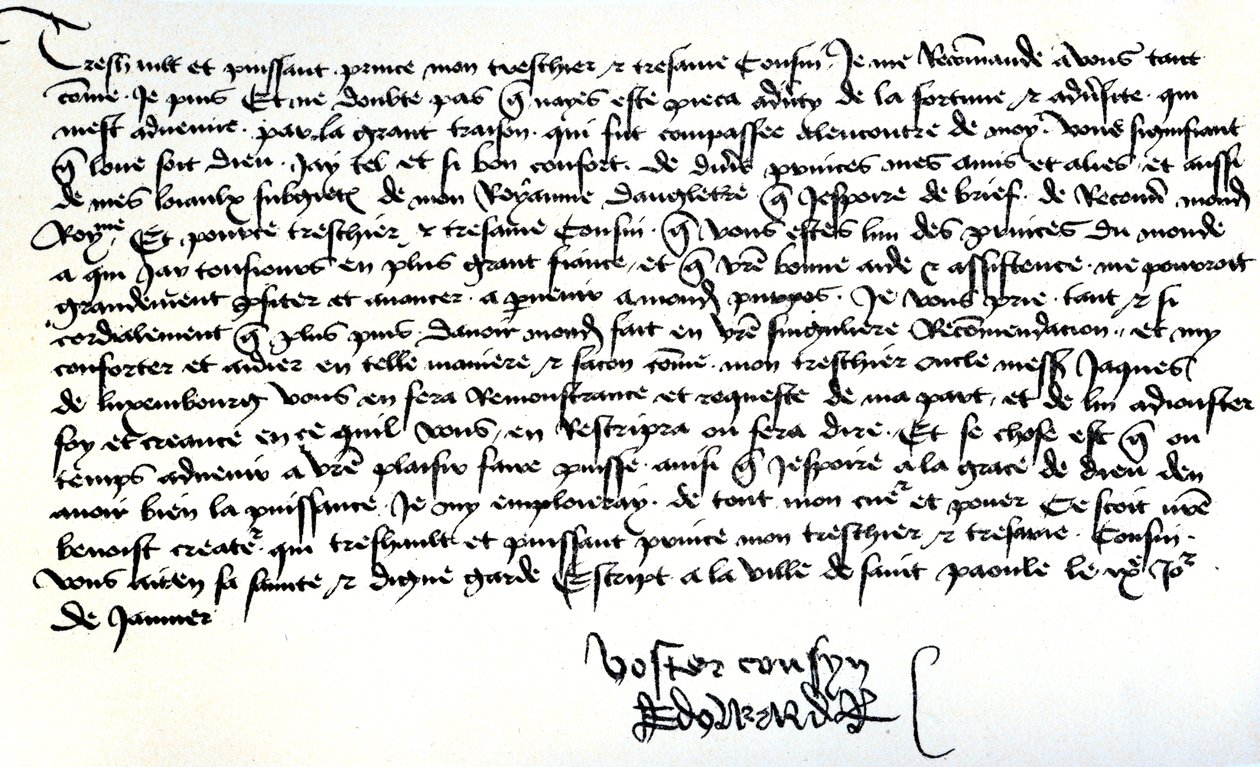 Treshault et puissant prince mon treschier & tresame Cousin Je me Recommande a vous tant
come Je puis Et ne doubte pas q̃ nayes este pieca adũty de la fortune & adũsite qui
mest advenue par la grant traison qui fut compassee alencontre de moy Vous signifiant
q̃ loue soit dieu Jay tel et si bon confort de diũs princes mes amis et alies et aussi
de mes loiaulx subgietz de mon Royaume dangleterre q̃ Jespoire de brief de Recouũ mond
Royme Et pource treschier & tresame Cousin q̃ vous estes lun des princes du monde
a qui Jay tousiours eu plus grant fiance et q̃ vr̃e bonne aide & assistence me pouroit
grandement ꝓfiter et avancer a ꝑvenir a mond propos Je vous prie tant & si
cordialement q̃ plus puis davoir mond fait en vr̃e singuliere Recõmendacion et my
conforter et aidier en telle maniere & facon cõme mon treschier oncle mess Jaques
de luxembourg vous en fera Remonstrance et requeste de ma part et de lui adiouster
foy et creance en ce quil vous en Rescripra ou fera dire Et se chose est q̃ ou
temps advenir a vr̃e plaisir faire puisse ainsi q̃ Jespoire a la grace de dieu den
avoir bien la puissance Je my emploieray de tout mon cuer et pouer Ce scoit nr̃e
benoist creater qui treshault et puissant prince mon treschier & tresame Cousin
vous ait en sa sainte & digne garde Escript a la ville de saint paoule le ixe Jor
de Janvier
Voster cousyn
Edward R